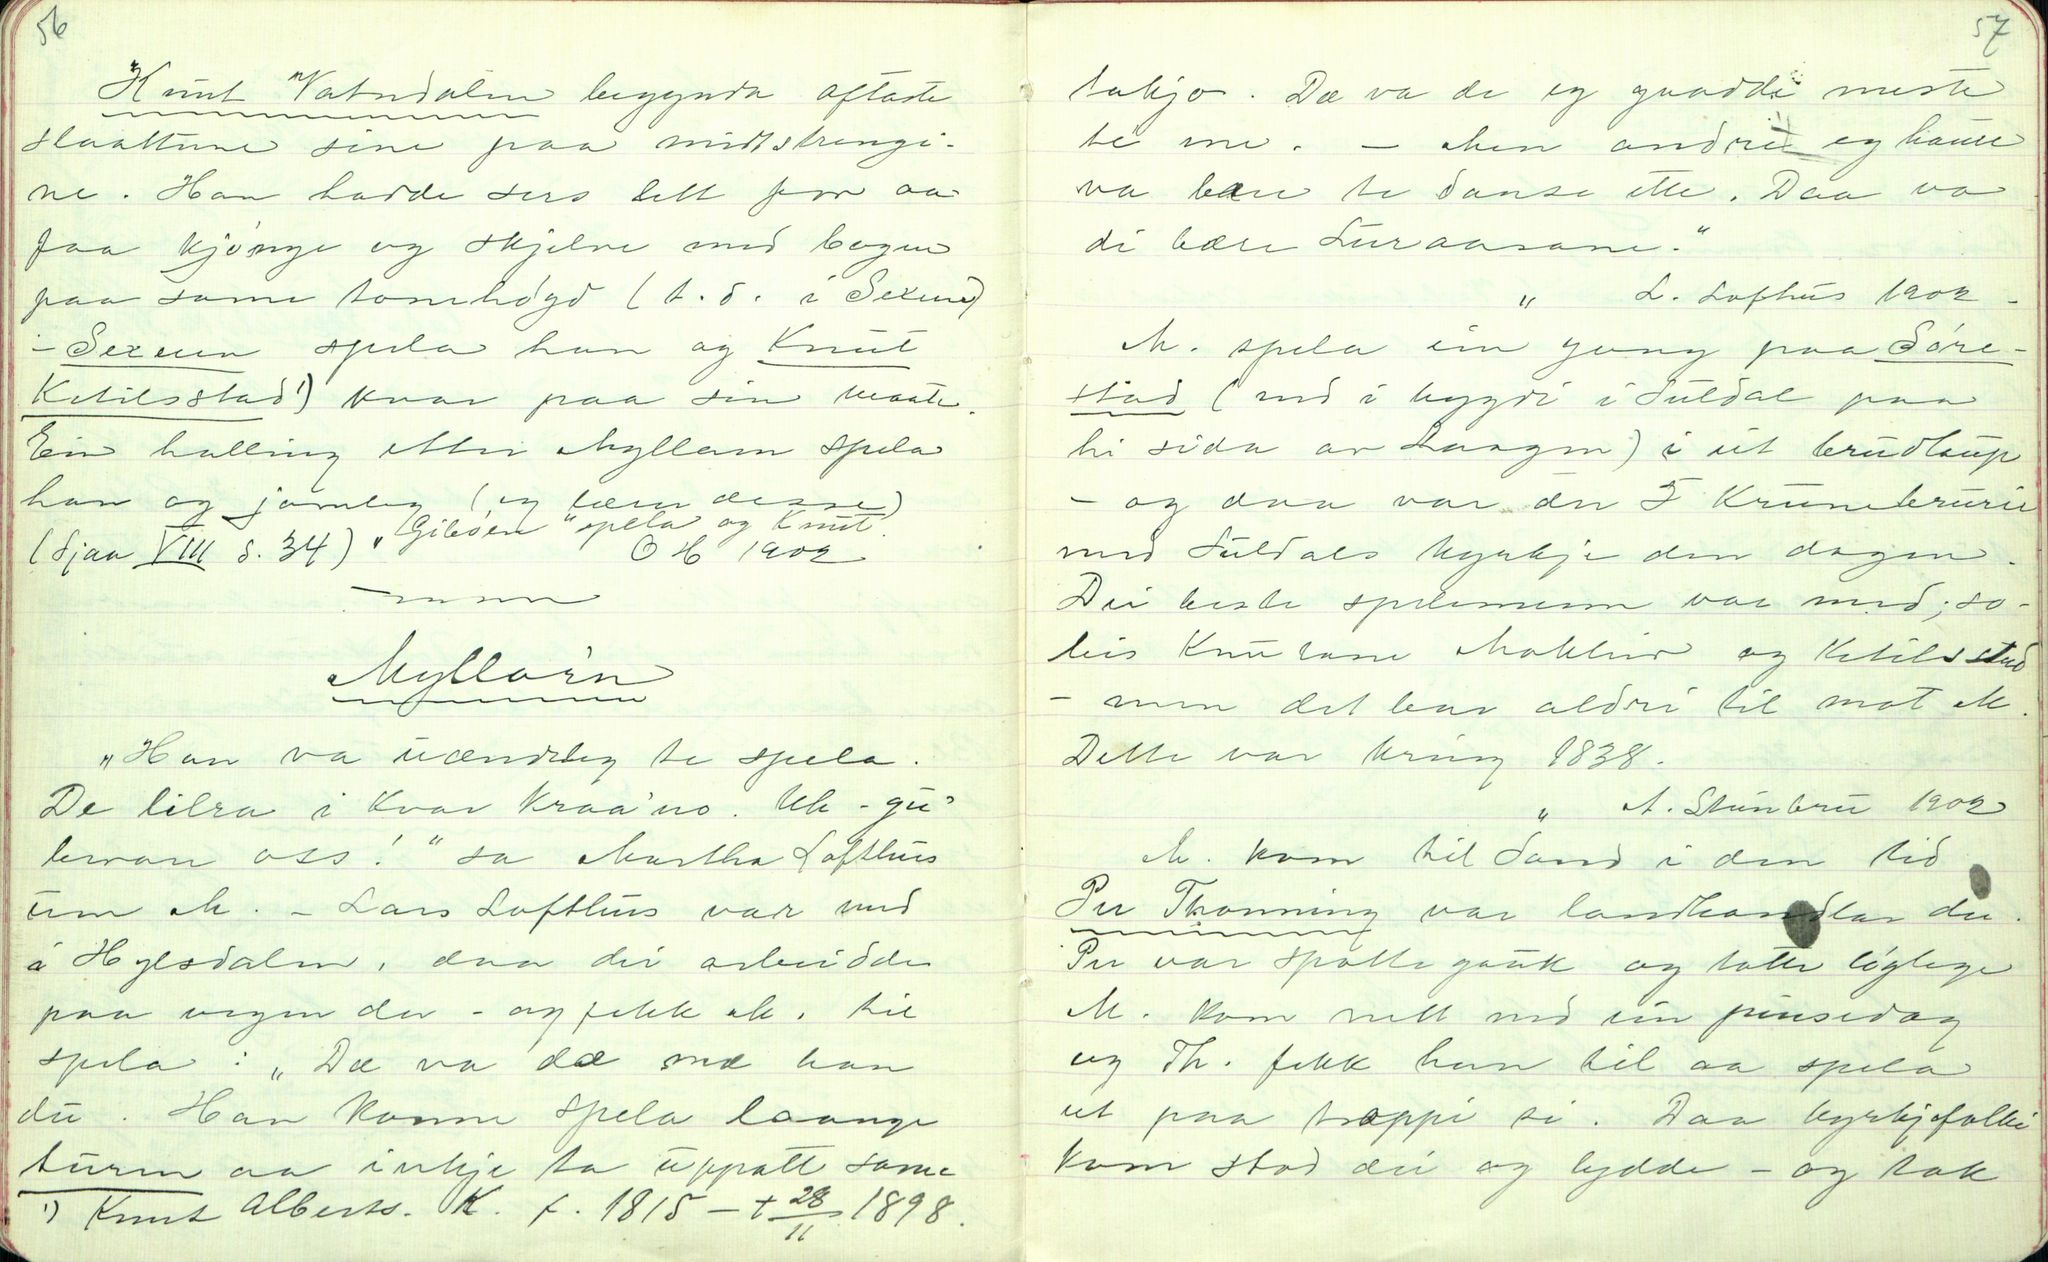 56
Knut Vatndalen begynda oftaste
slaattune sine paa midtstrengi-
ne. Han hadde sers lett for aa
faa kjønge og skjelve med bogen
paa same tonehøgd (t.d. i Sexeu)
- Sexeun spela han og Knut
Ketilsstad ¹) kvar paa sin maate.
Ein halling etter Myllarn spela
han og jamleg (eg lærn desse)
(Sjaa VIII s. 34) „Giböen" spela og Knut.
O H 1902
Myllar'n
„Han va uændeleg te spela.
De tilra i kvar kraa'no. Uh - gu'
bevan oss!" sa Martha Lofthus
um M. - Lars Lofthus var med
i Hylsdalen, daa dei arbeidde
paa vegen der - og fekk M. til
spela: „Dæ va dæ mæ han
du. Han konne spela laange
turen aa inkje ta uppatt same
¹) Knut Alberts. K. f. 1815 - + 28/11 1898.
57
tokjo. Dæ va de eg gnodde meste
te me. - Men andre eg høure
va bære te danse ette. Daa va
di bære Luraasane."
„ L. Lofthus 1902 -
M. spela ein gong paa Søre-
stad (ned i bygdi i Suldal paa
hi sida av Laagen) i eit brudlaup
- og daa var der 5 krunebrurir
med Suldals kyrkje den dagen.
Dei beste spelemenn var med; so-
leis Knutane Moklied og Ketilsstad
- men det bar aldri til mot M.
Dette var kring 1838.
„ A. Steinbru 1902
M. kom til Sand i den tid
Per Thonning var landhandlar der.
Per var spottegauk og totte løglege
M. kom nett ned ein pinsedag
og Th. fekk han til aa spela
ut paa troppi si. Daa kyrkjefolki
kom stod dei og lydde - og tok